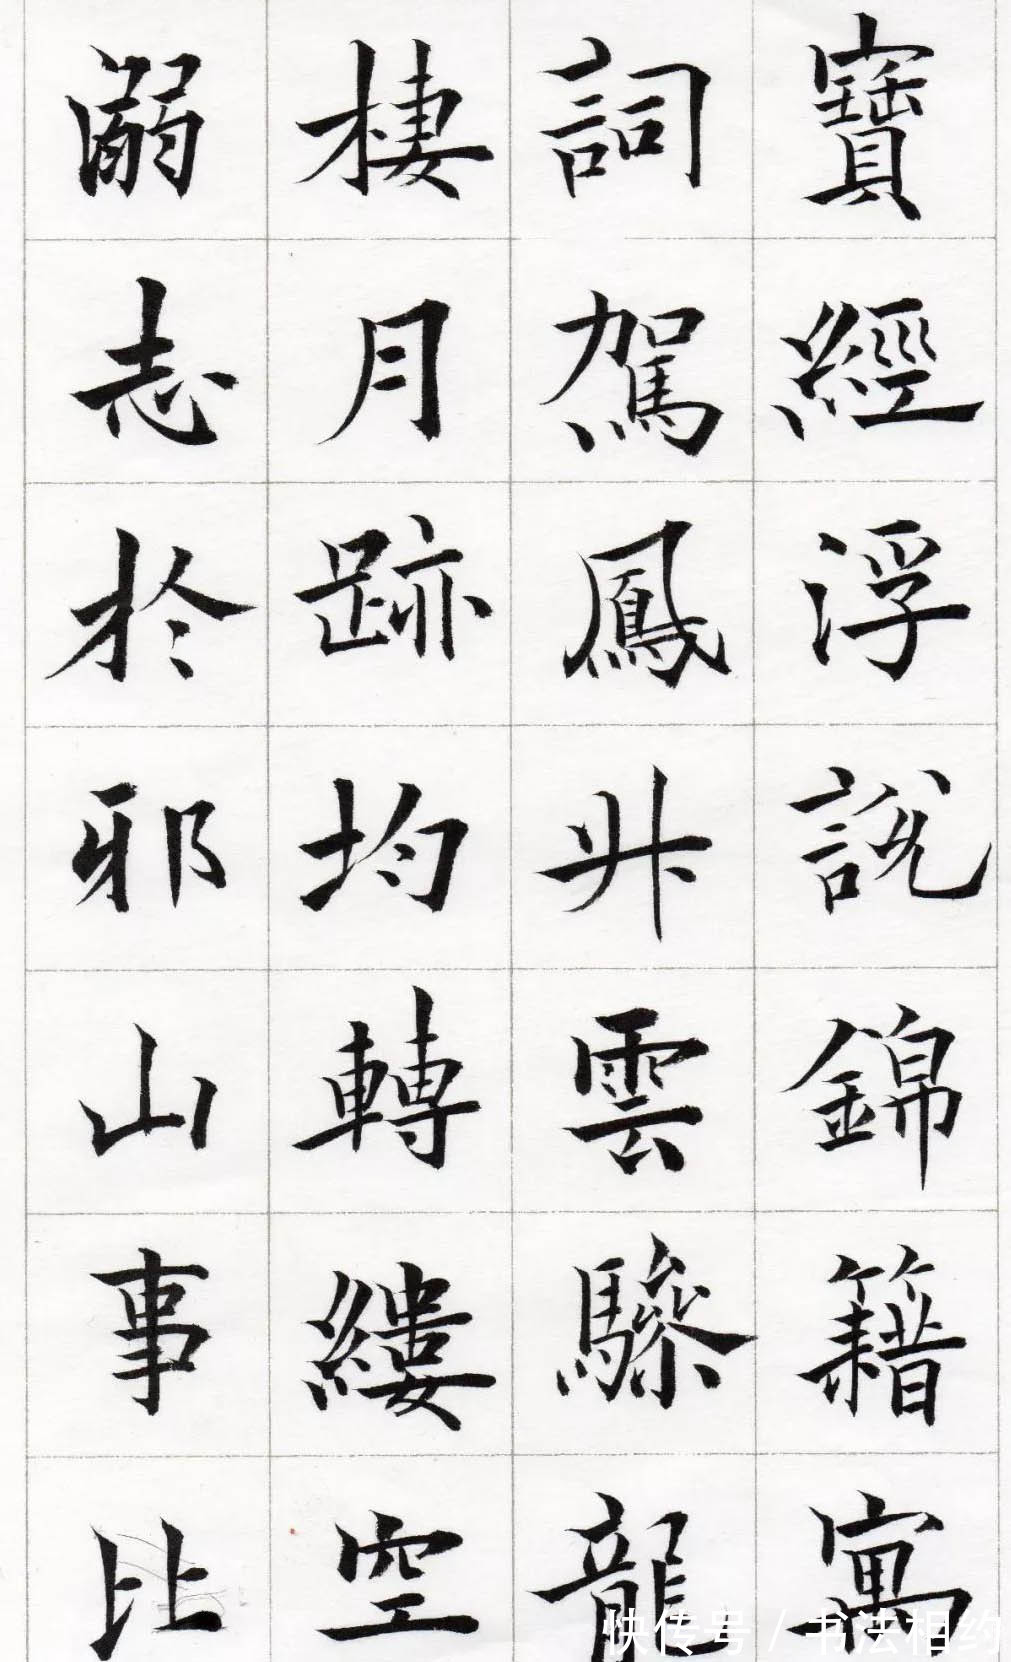 寶經浮說錦籍寓
詞駕鳳升雲驂龍
棲月跡均轉縷空
溺志於邪山事比
快传号 / 书法相约